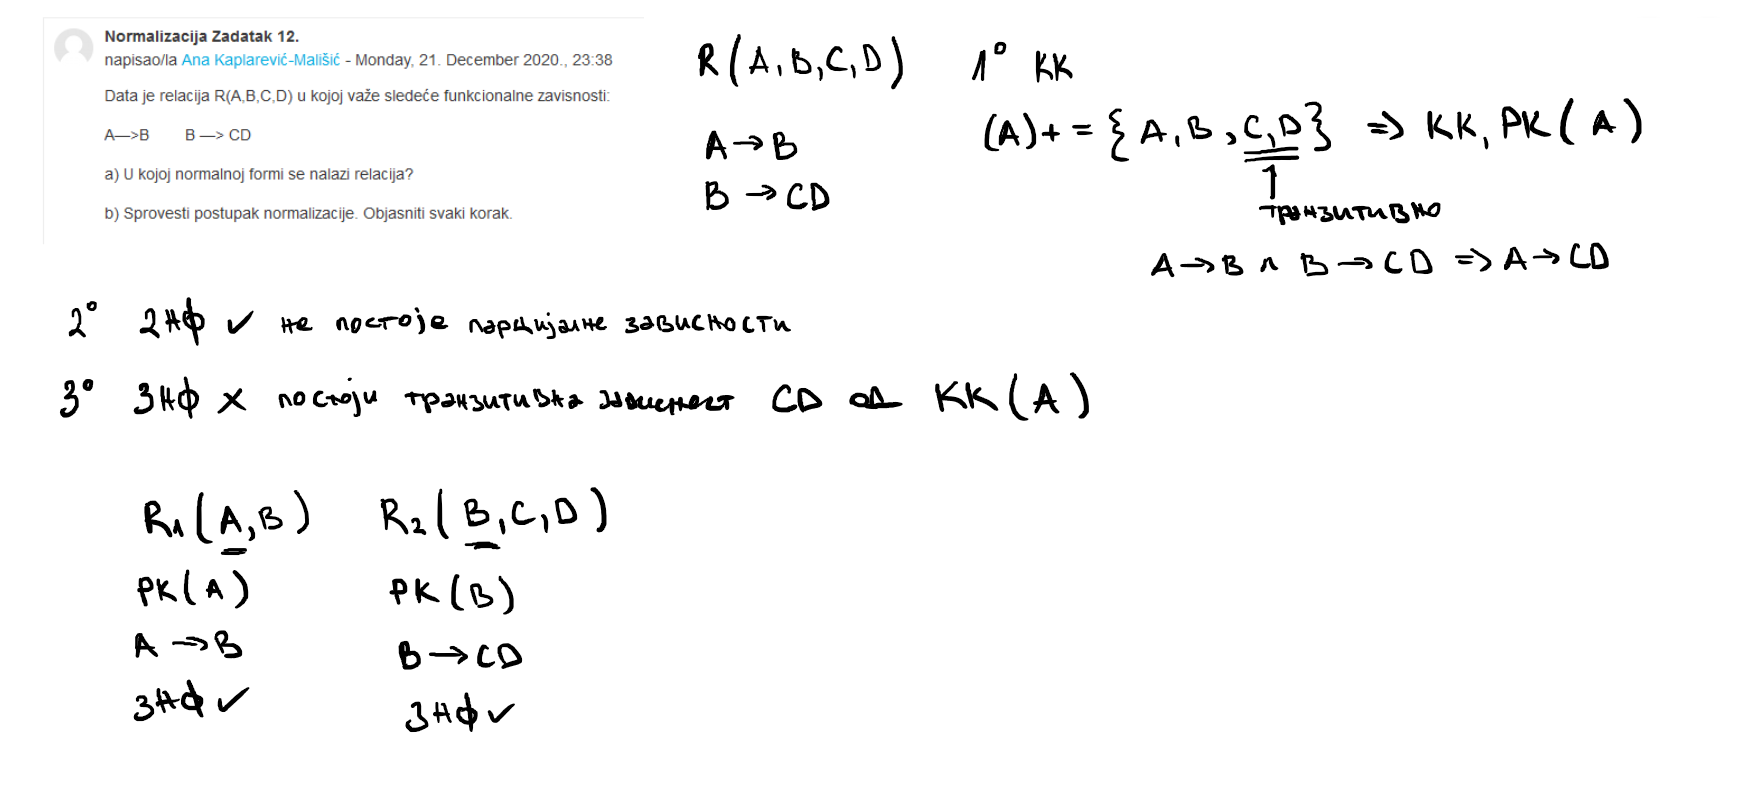 Normalizacija Zadatak 12.
napisao/la Ana Kaplarević-Mališić - Monday, 21. December 2020., 23:38
Data je relacija R(A,B,C,D) u kojoj važe sledeće funkcionalne zavisnosti:
A—>B B —> CD
a) U kojoj normalnoj formi se nalazi relacija?
b) Sprovesti postupak normalizacije. Objasniti svaki korak.
R(A,B,C,D)
A→B
B→CD
1° KK
(A)+ = {A,B,C,D} => KK, PK(A)
↑
транзитивно
A→B ∧ B→CD => A→CD
2° 2НФ ✓ не постоје парцијалне зависности
3° 3НФ x постоји транзитивна зависност CD од KK(A)
R1(A,B) R2(B,C,D)
PK(A) PK(B)
A→B B→CD
3НФ ✓ 3НФ ✓